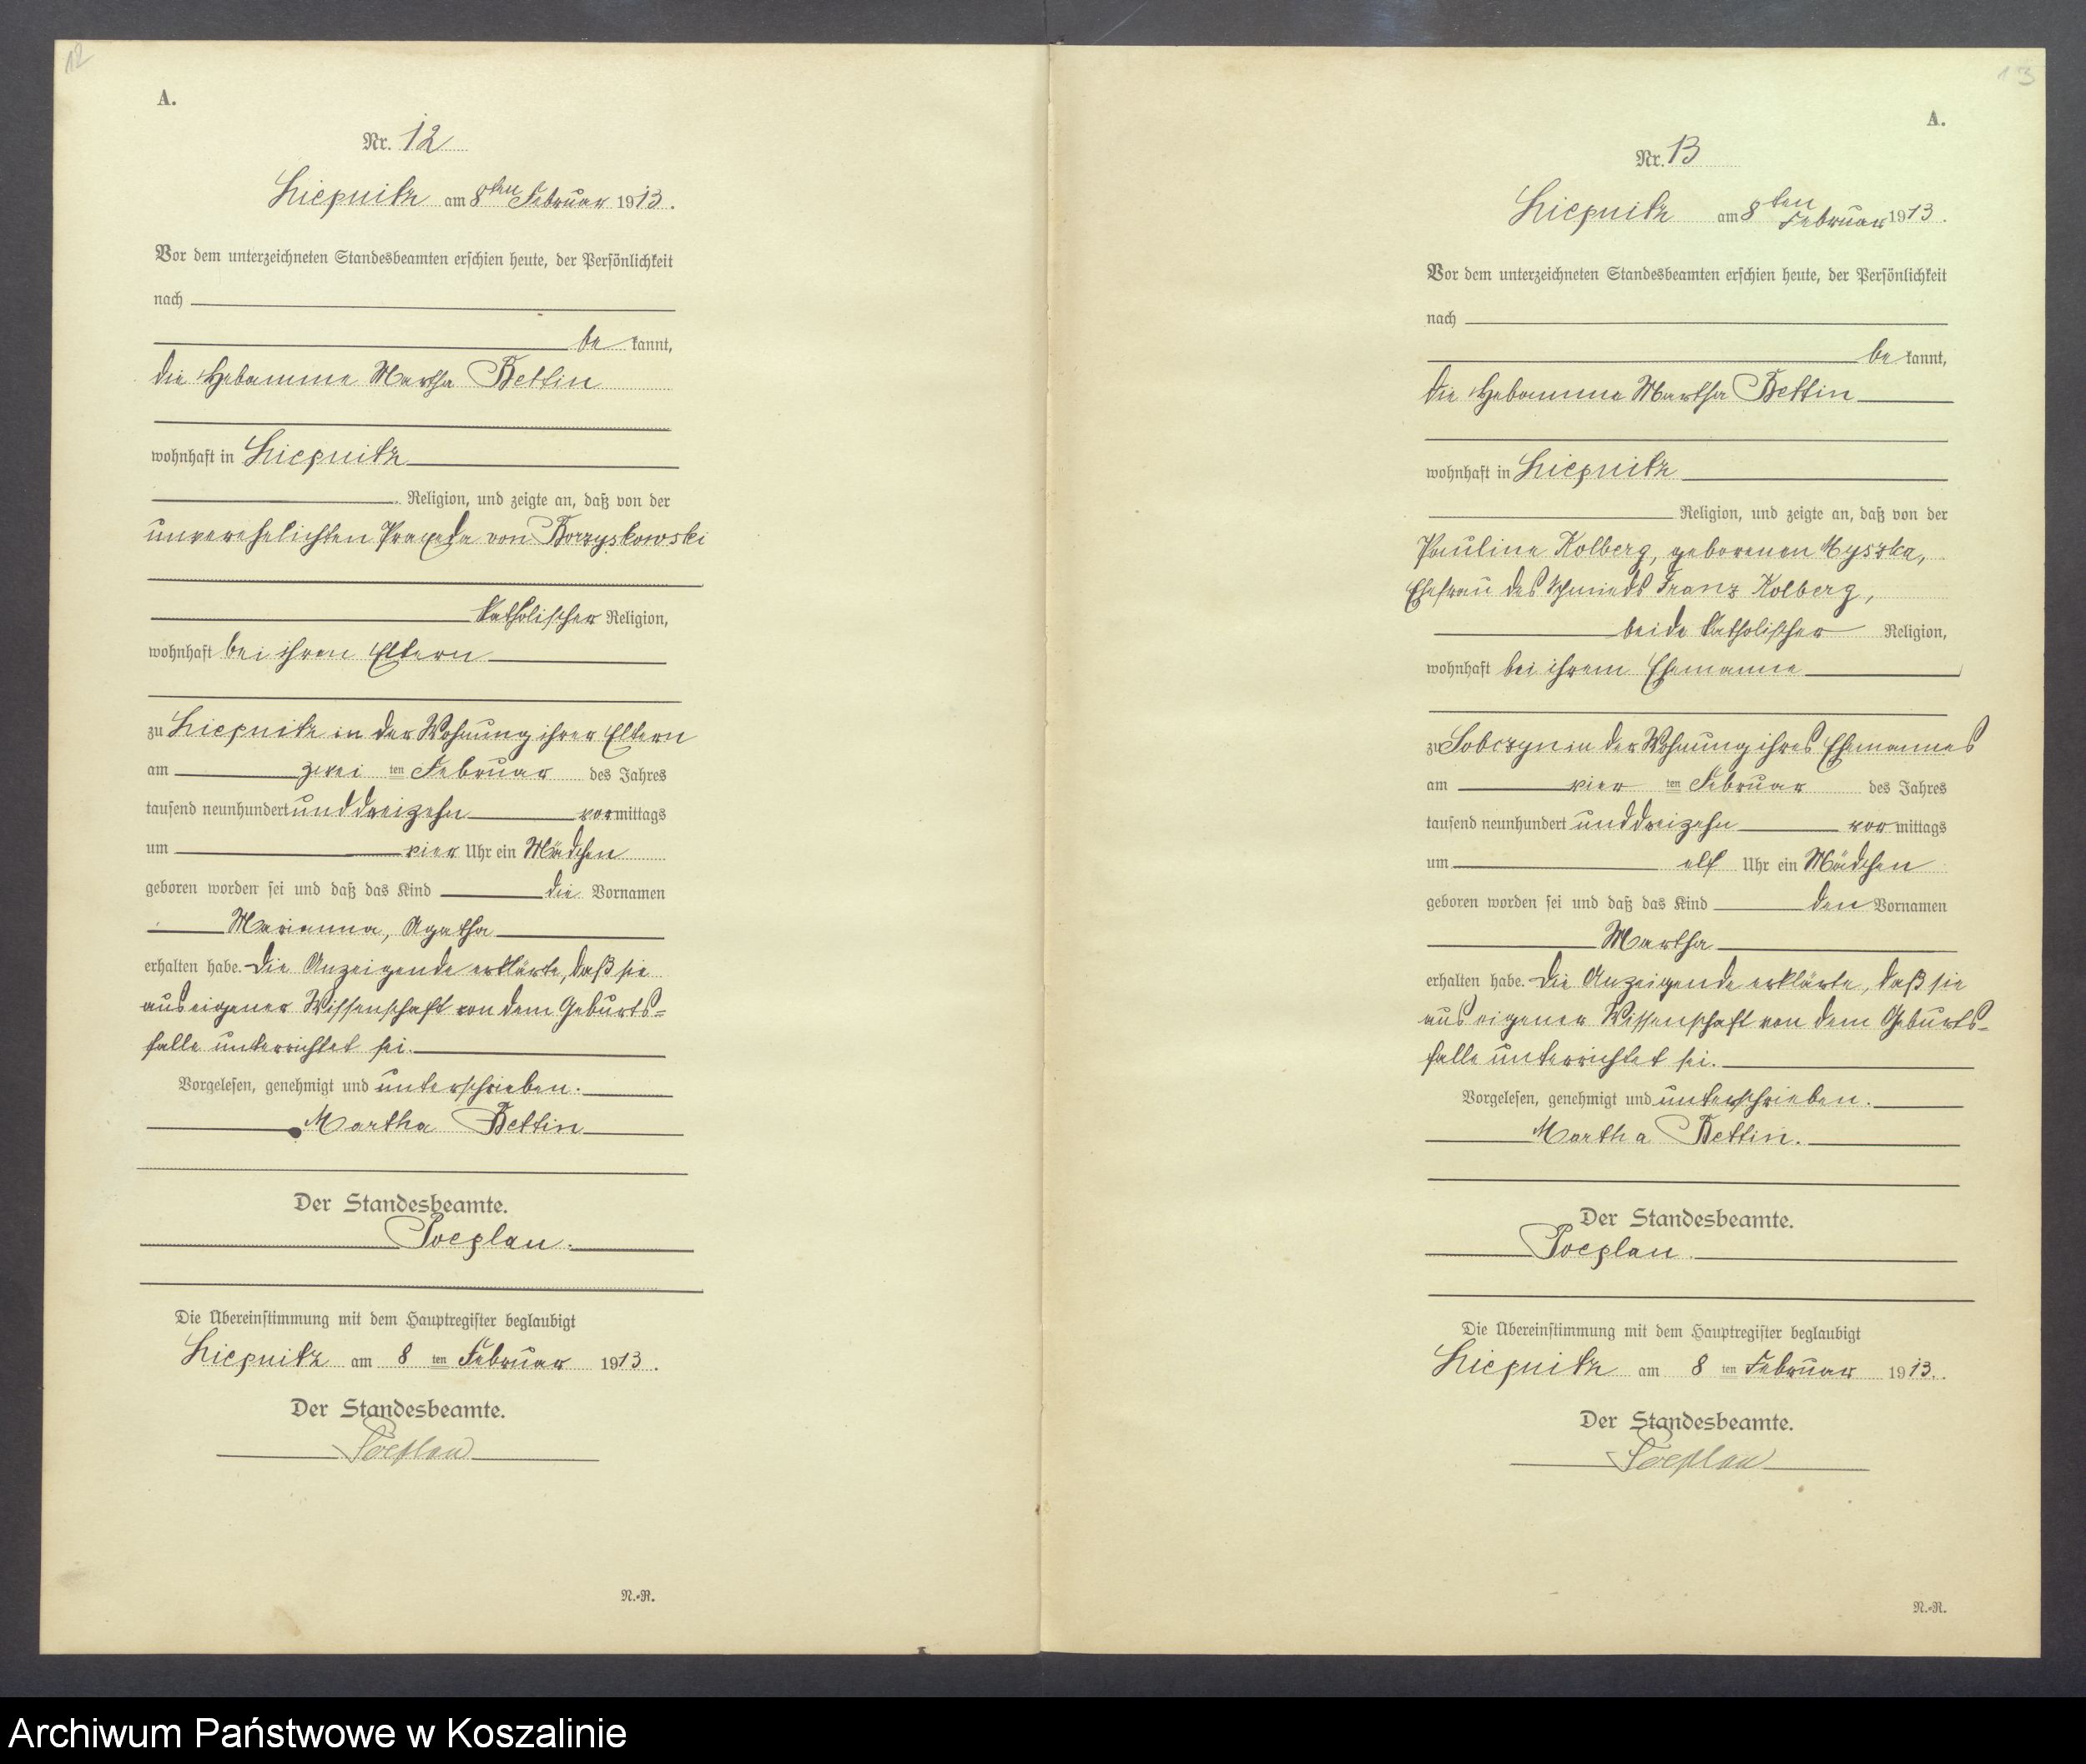 12
A.
Nr. 12
Liepnitz am 8ten Februar 1913.
Vor dem unterzeichneten Standesbeamten erschien heute, der Persönlichkeit
nach
be kannt,
die Hebamme Martha Bettin
wohnhaft in Liepnitz
Religion, und zeigte an, daß von der
unverehelichten Praxeda von Borzyskowski
katholischer Religion,
wohnhaft bei ihren Eltern
zu Liepnitz in der Wohnung ihrer Eltern
am zwei ten Februar des Jahres
tausend neunhundert unddreizehn vormittags
um vier Uhr ein Mädchen
geboren worden sei und daß das Kind die Vornamen
Marianna, Agatha
erhalten habe. Die Anzeigende erklärte, daß sie
aus eigener Wissenschaft von dem Geburts-
falle unterrichtet sei.
Vorgelesen, genehmigt und unterschrieben.
Martha Bettin
Der Standesbeamte.
Poeplau.
Die Übereinstimmung mit dem Hauptregister beglaubigt
Liepnitz am 8 ten Februar 1913.
Der Standesbeamte.
Poeplau
N.-R.
13
A.
Nr. 13
Liepnitz am 8ten Februar 1913.
Vor dem unterzeichneten Standesbeamten erschien heute, der Persönlichkeit
nach
be kannt,
die Hebamme Martha Bettin
wohnhaft in Liepnitz
Religion, und zeigte an, daß von der
Pauline Kolberg, geborenen Myszka,
Ehefrau des Schmieds Franz Kolberg,
beide katholischer Religion,
wohnhaft bei ihrem Ehemanne
zu Sobczyn in der Wohnung ihres Ehemannes
am vier ten Februar des Jahres
tausend neunhundert unddreizehn vormittags
um elf Uhr ein Mädchen
geboren worden sei und daß das Kind den Vornamen
Martha
erhalten habe. Die Anzeigende erklärte, daß sie
aus eigener Wissenschaft von dem Geburts-
falle unterrichtet sei.
Vorgelesen, genehmigt und unterschrieben.
Martha Bettin.
Der Standesbeamte.
Poeplau.
Die Übereinstimmung mit dem Hauptregister beglaubigt
Liepnitz am 8 ten Februar 1913.
Der Standesbeamte.
Poeplau
N.-R.
Archiwum Państwowe w Koszalinie